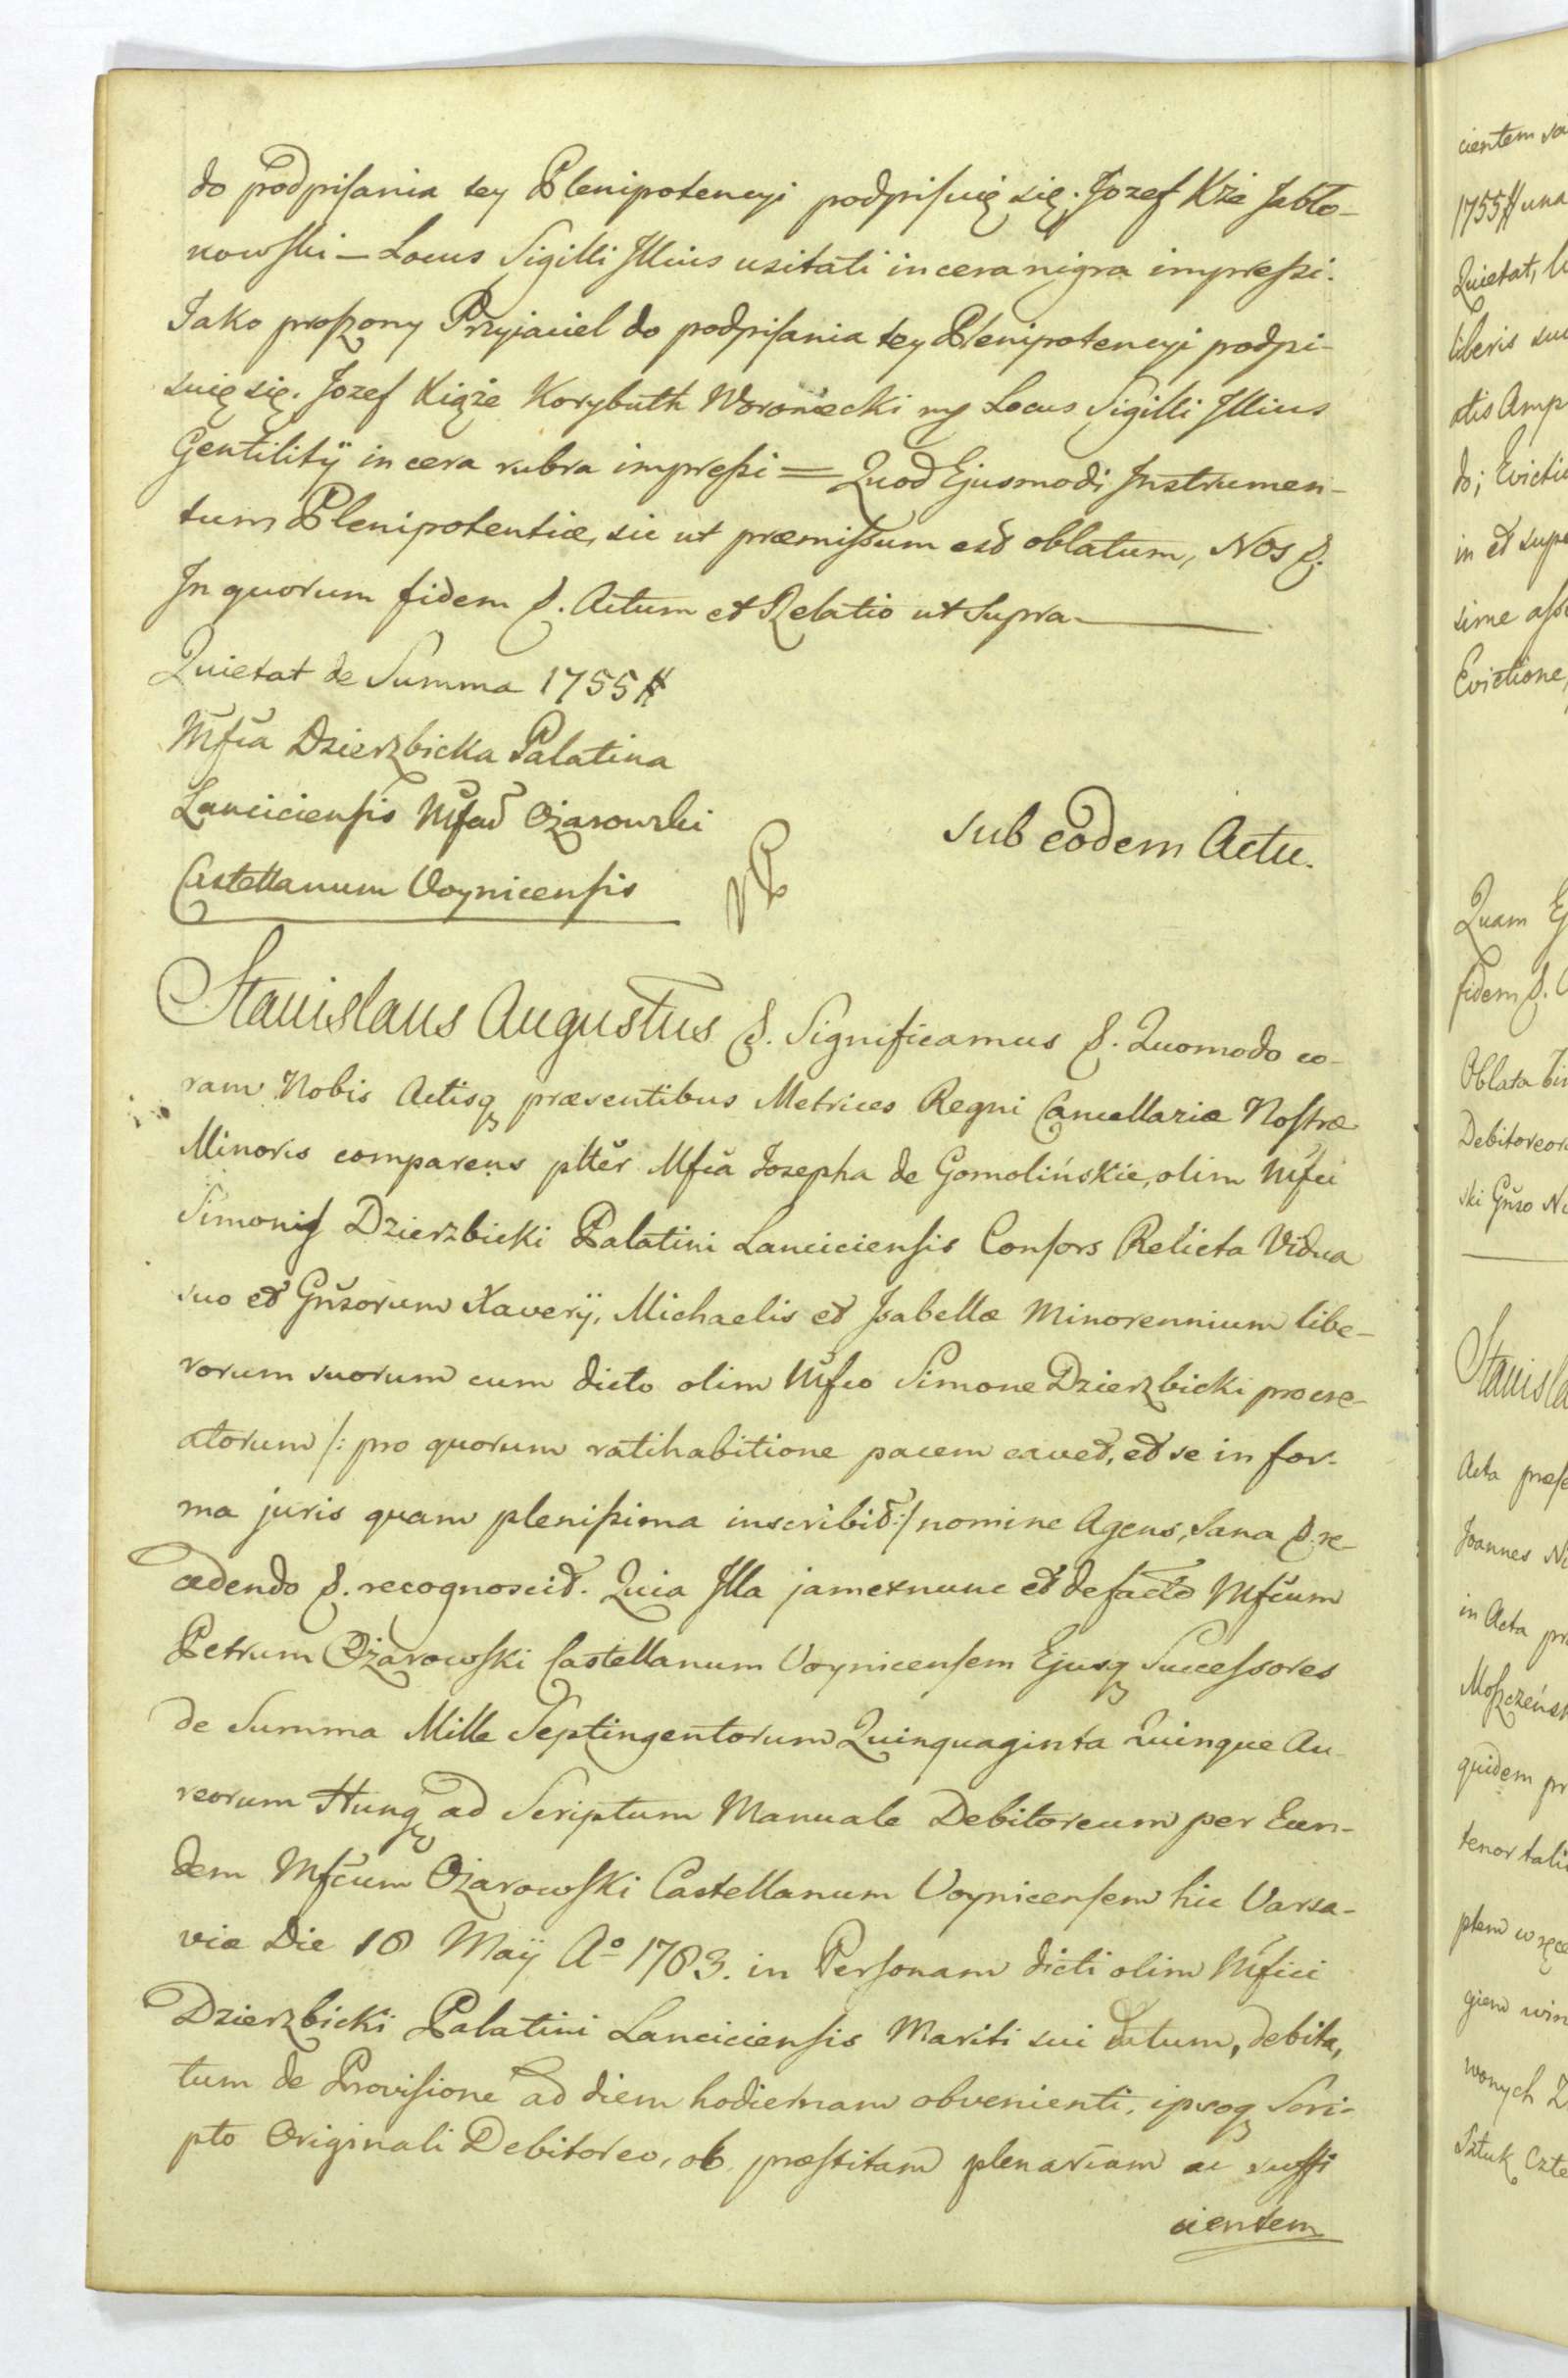 do podpisania tey Plenipotencyi podpisuię się. Jozef Xże Jabło-
nowski — Locus Sigilli Illius usitati in cera nigra impressi.
Jako proszony Przyjaciel do podpisania tey Plenipotencyi podpi-
suię się. Jozef Xiąże Korybuth Woroniecki mp Locus Sigilli Illius
Gentilitÿ in cera rubra impressi = Quod Ejusmodi Instrumen-
tum Plenipotentiæ, sic ut præmissum est oblatum, Nos &.
In quorum fidem &. Actum et Relatio ut Supra.
Quietat de Summa 1755 #
Mfca Dzierzbicka Palatina
Lanciciensis Mfcum Ożarowski
Castellanum Voynicensis
Sub eodem Actu.
Stanislaus Augustus &. Significamus &. Quomodo co-
ram Nobis Actisq præsentibus Metrices Regni Cancellariæ Nostræ
Minoris comparens pltter Mfca Jozepha de Gomolińskie, olim Mfci
Simonis Dzierzbicki Palatini Lanciciensis Consors Relicta Vidua
suo et Gnsorum Xaverÿ, Michaelis et Isabellæ Minorennium libe-
rorum suorum cum dicto olim Mfco Simone Dzierzbicki procre-
atorum /: pro quorum ratihabitione pacem cavet, et se in for-
ma juris quam plenissima inscribit :/ nomine Agens, Sana &. re-
cedendo &. recognoscit. Quia Illa jam exnunc et defacto Mfcum
Petrum Ożarowski Castellanum Voynicensem Ejusq Successores
de Summa Mille Septingentorum Quinquaginta Quinque Au-
reorum Hung ad Scriptum Manuale Debitoreum per Eun-
dem Mfcum Ożarowski Castellanum Voynicensem hic Varsa-
viæ Die 18 Maÿ Aº 1783. in Personam dicti olim Mfici
Dzierzbicki Palatini Lanciciensis Mariti sui datum, debita,
tum de Provisione ad diem hodiernam obvenienti, ipsoq Scri-
pto Originali Debitoreo, ob præstitam plenariam ac suffi
cientem
cientem
1755 # una
Quietat,
liberis
atis Amp
do; Evicti
in et supe
sime
Evictione,
Quam
fidem &.
Oblata
Debitoreor
ski Gnso
Stanisla
Acta præs
Joannes
in Acta
Moszczeńsk
quidem
tenor tali
ptem
giem win
wonych
Sztuk Czte